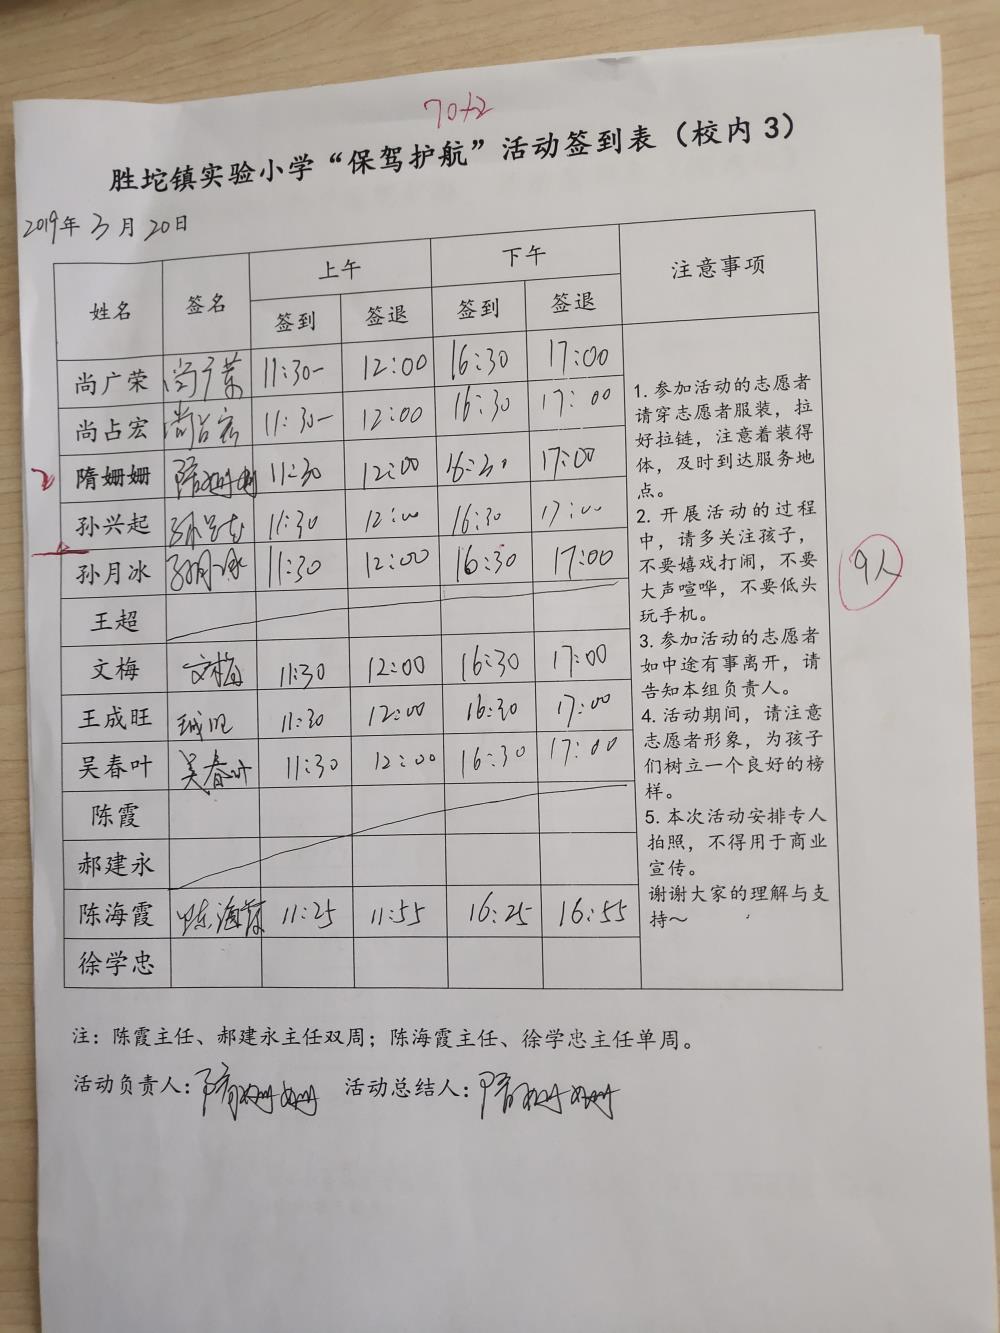 70+2
胜坨镇实验小学“保驾护航”活动签到表（校内3）
2019年3月20日
姓名 签名 上午 下午 注意事项
签到 签退 签到 签退
尚广荣 尚广荣 11:30- 12:00 16:30 17:00
尚占宏 尚占宏 11:30- 12:00 16:30 17:00
2 隋姗姗 隋姗姗 11:30 12:00 16:30 17:00
孙兴起 孙兴起 11:30 12:00 16:30 17:00
孙月冰 孙月冰 11:30 12:00 16:30 17:00
王超
文梅 文梅 11:30 12:00 16:30 17:00
王成旺 王成旺 11:30 12:00 16:30 17:00
吴春叶 吴春叶 11:30 12:00 16:30 17:00
陈霞
郝建永
陈海霞 陈海霞 11:25 11:55 16:25 16:55
徐学忠
1. 参加活动的志愿者
请穿志愿者服装，拉
好拉链，注意着装得
体，及时到达服务地
点。
2. 开展活动的过程
中，请多关注孩子，
不要嬉戏打闹，不要
大声喧哗，不要低头
玩手机。
3. 参加活动的志愿者
如中途有事离开，请
告知本组负责人。
4. 活动期间，请注意
志愿者形象，为孩子
们树立一个良好的榜
样。
5. 本次活动安排专人
拍照，不得用于商业
宣传。
谢谢大家的理解与支
持～
9人
注：陈霞主任、郝建永主任双周；陈海霞主任、徐学忠主任单周。
活动负责人：隋姗姗 活动总结人：隋姗姗